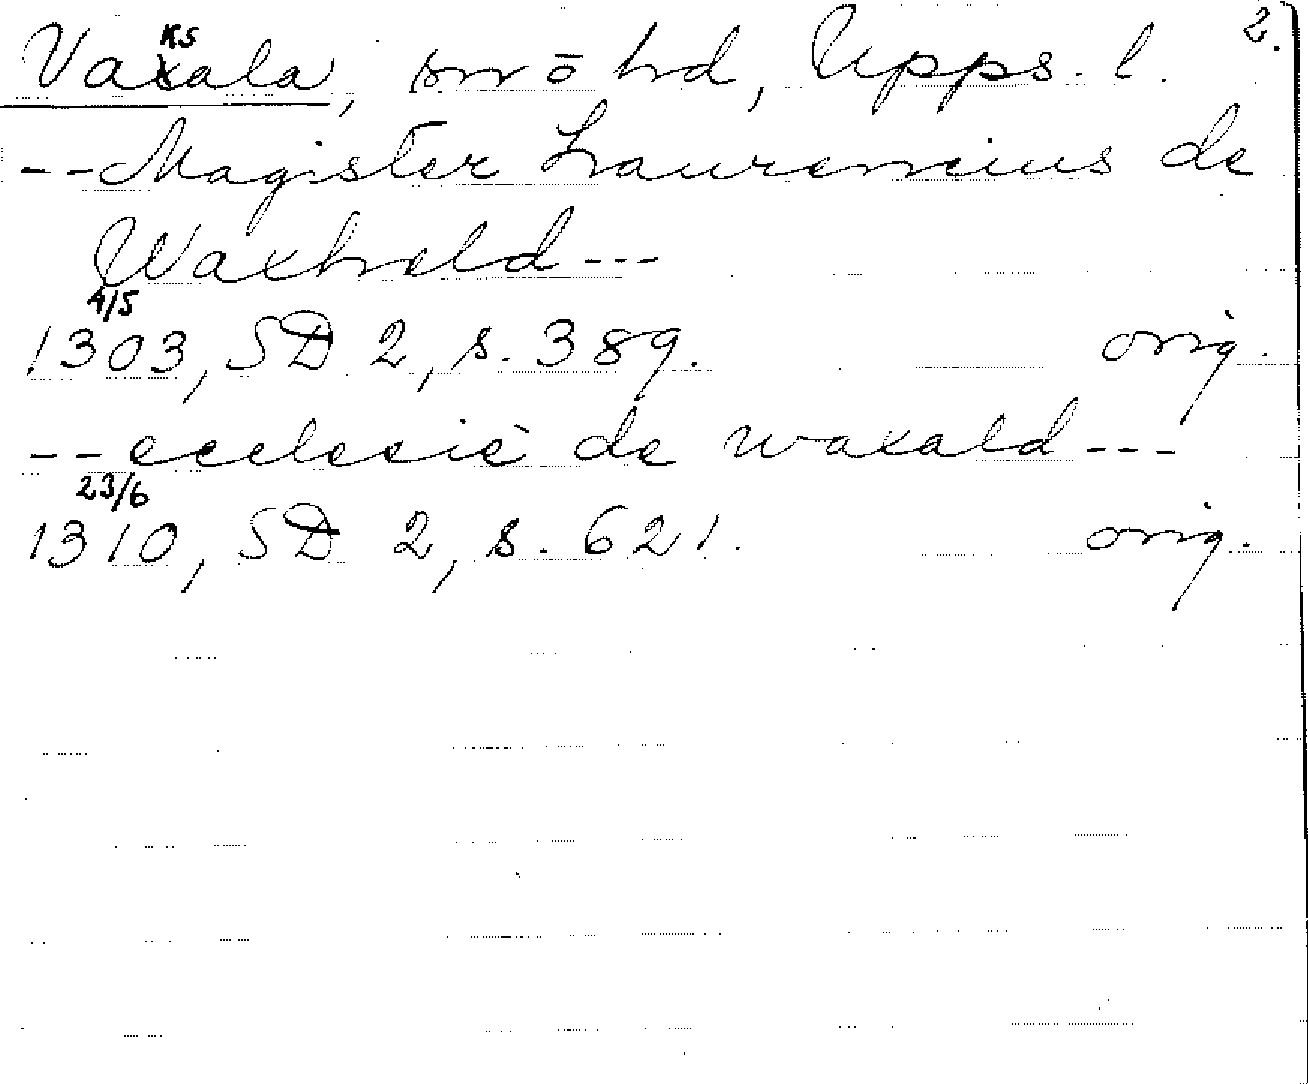 2.
Vaxala, sn o hd, Upps. l.
ks
--Magister Laurencius de
Waxhald---
4/5
1303, SD 2, s. 389. orig.
--ecclesie de waxald---
23/6
1310, SD 2, s. 621. orig.